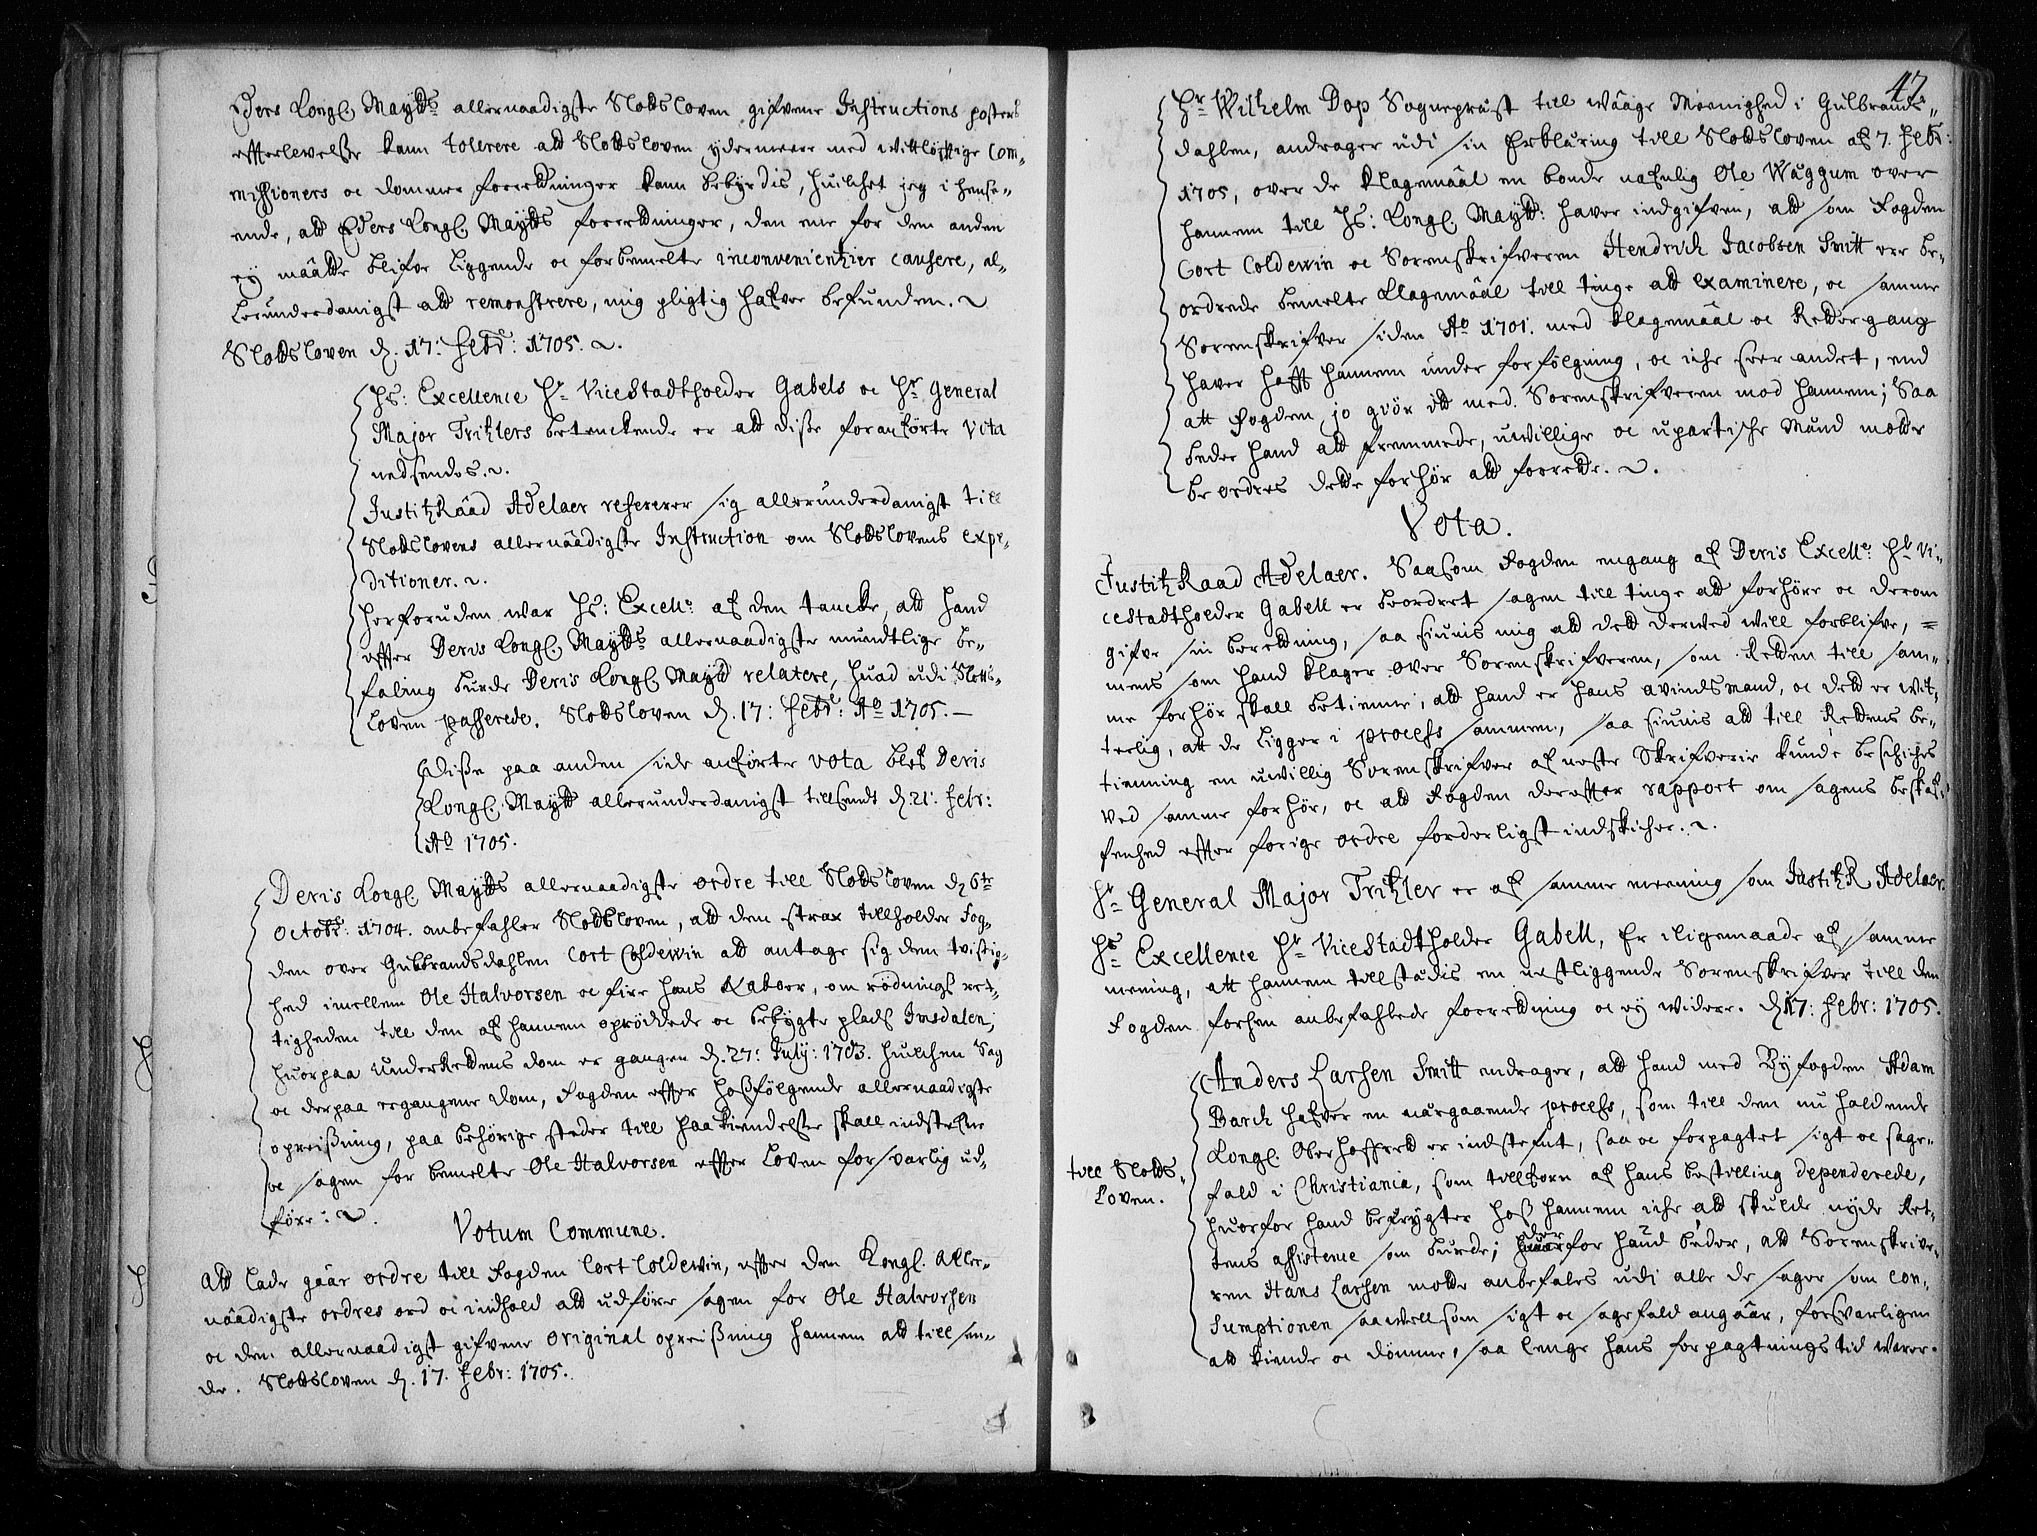 Eders Kongl. Maytts allernaadigste Slottsloven gifvene Instructions posters
efterlevelse kann tollerere att Slottsloven ydermeere med vittløftige Com-
missioners oc dommer forretninger kann bebyrdis, huilchet jeg i hense-
ende, att Eders Kongl. Maytts forretninger, den ene for den anden
ej maatte blifve liggende oc forbemelte inconvenientzier causere, al-
lerunderdanigst att remonstrere, mig pligtig hafver befunden.
Slottsloven d. 17: Febr: 1705.
Hs: Excellence Hr ViceStadtholder Gabels oc Hr General
Major Tritzlers betenckende er att disse foranførte Vota
nedsendes.
Justitz Raad Adelaer refererer sig allerunderdanigst till
Slottslovens allernaadigste Instruction om Slottslovens expe-
ditioner.
Herforuden war Hs: Excell: af den tancke, att hand
efter Deris Kongl. Maytts allernaadigste mundtlige be-
faling burde Deris Kongl. Maytt relatere, huad udi Slotts-
loven passerede. Slottsloven d. 17: Febr: Ao 1705.
Disse paa anden side anførte vota blef Deris
Kongl. Maytt allerunderdanigst tillsendt d. 21: Febr:
Ao 1705.
Deris Kongl. Maytts allernaadigste ordre till Slottsloven d. 6te
Octobr: 1704. anbefahler Slottsloven, att den strax tillholder Fog-
den over Gulbrandsdahlen Cort Coldewin att antage sig den tvistig-
hed imellem Ole Halvorsen oc fire hans Naboer, om rødnings ret-
tigheden till den af hannem oprøddede oc bebygte plads Imsdalen,
huorpaa UnderRettens dom er gangen d. 27: July: 1703. huilchen Sag
oc derpaa ergangene dom, Fogden efter hosfølgende allernaadigste
opreisning, paa behørige steder till Paakiendelse skall indstefne
oc sagen for bemelte Ole Halvorsen efter Loven forsvarlig ud-
føre:
Votum Commune.
Att lade gaar ordre till Fogden Cort Coldewin, efter den Kongl. Aller-
naadigste ordres ord oc indhold att udføre sagen for Ole Halvorsen
oc den allernaadigst gifvene original opreisning hannem att till sen-
de. Slottsloven d. 17. Febr: 1705.
47
Hr Wilhelm Dop Sognepræst till Waage Meenighed i Gulbrands-
dahlen, andrager udi sin Erklæring till Slottsloven af 7. Febr:
1705, over de Klagemaal en bonde nafnlig Ole Waggum over
hannem till Hs: Kongl. Maytt: haver indgifven, att som Fogden
Cort Coldewin oc Sorenskrifveren Hendrich Jacobsen Smitt ere be-
ordrede bemelte Klagemaal till tinge att examinere, oc samme
Sorenskrifver siden Ao 1701. med Klagemaal oc Rettergang
haver hafft hannem under forfølgning, oc iche seer andet, end
att Fogden jo giør ett med Sorenskrifveren mod hannem; Saa
beder hand att fremmede, uwillige oc upartische Mænd motte
beordres dette forhør att forrette.
Vota.
Justitz Raad Adelaer. Saasom Fogden engang af Deris Excell: Hr Vi-
cestadtholder Gabell er beordret sagen till tinge att forhøre oc derom
gifve sin beretning, saa siunis mig att dett derved will forblifve, =
mens som hand klager over Sorenskrifveren, som Retten till sam-
me forhør skall betienne, att hand er hans avindsmand, oc dett er vit-
terlig, att de ligger i process sammen, saa siunis att till Rettens be-
tienning en uwillig Sorenskrifver af neste Skrifverie kunde beschiches
ved samme forhør, oc att Fogden derefter rapport om sagens beskaf-
fenhed efter forige ordre forderligst indskicher.
Hr General Major Tritzler er af samme meening som JustitzR Adelaer.
Hs Excellence Hr ViceStadtholder Gabell, Er iligemaade af samme
mening, att hannem tillstædis en nestliggende Sorenskrifver till den
Fogden forhen anbefahlede forretning oc ej widere. d. 17: Febr: 1705.
Anders Larsen Smitt andrager, att hand med Byfogden Adam
Barch hafver en nærgaaende process, som till den nu holdende
Kongl. Oberhoffrett er indstefnt, saa oc forpagtet sigt oc sage-
fald i Christiania, som tillforn af hans bestilling dependerede,
huorfor hand befrygter hoss hannem iche att skulde nyde Ret-
tens assistence som burde; derfor hand beder, att Sorenskrive-
ren Hans Larsen motte anbefales udi alle de sager som Con-
sumptionen saawell som sigt oc sagefald angaar, forsvarligen
att kiende oc dømme, saa lenge hans forpagtnings tid warer.
till Slotts-
Loven.